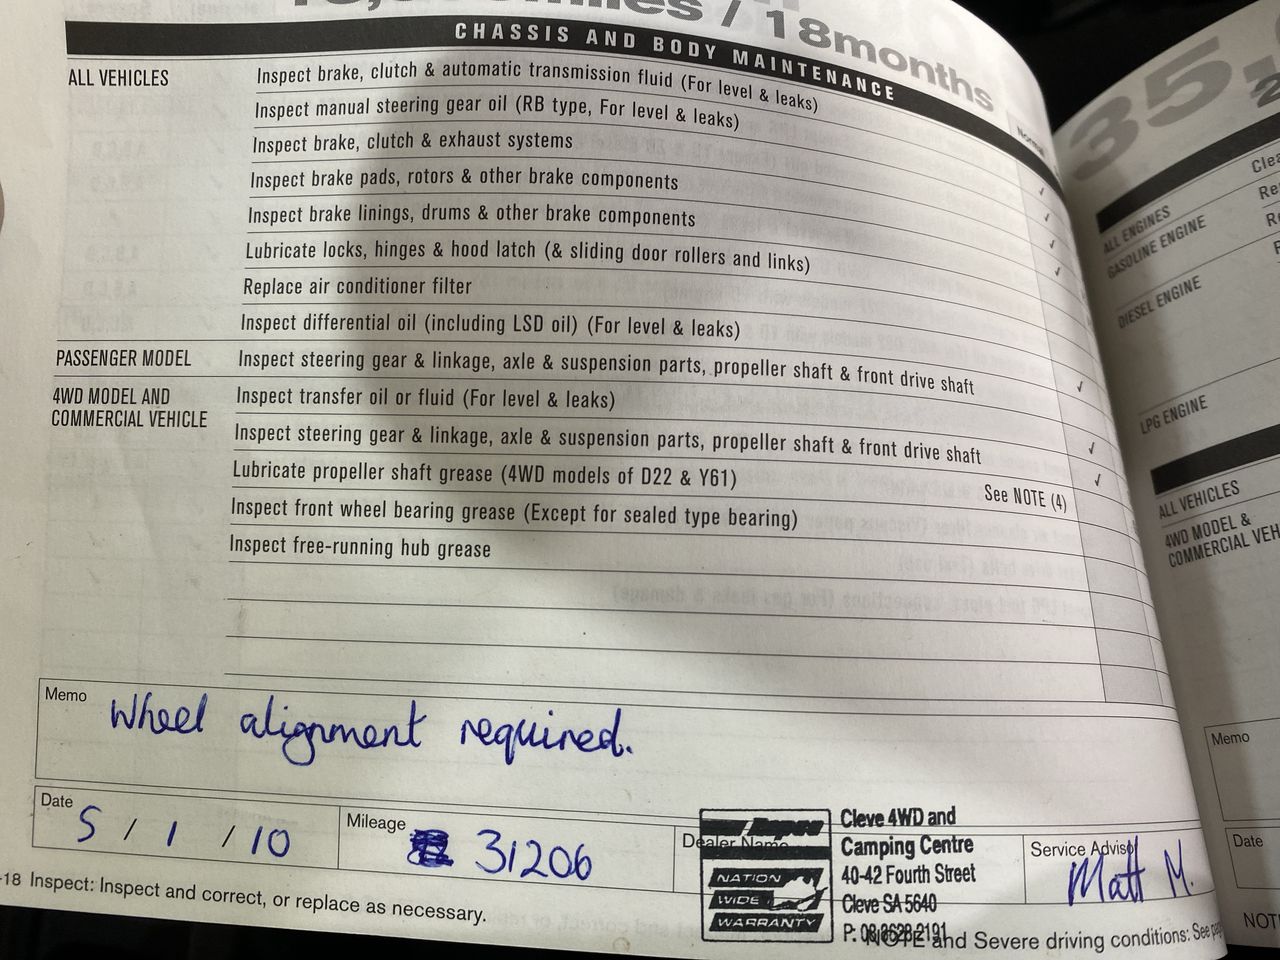 / 18months
CHASSIS AND BODY MAINTENANCE
Normal
ALL VEHICLES
Inspect brake, clutch & automatic transmission fluid (For level & leaks)
Inspect manual steering gear oil (RB type, For level & leaks)
Inspect brake, clutch & exhaust systems
Inspect brake pads, rotors & other brake components
Inspect brake linings, drums & other brake components
Lubricate locks, hinges & hood latch (& sliding door rollers and links)
Replace air conditioner filter
Inspect differential oil (including LSD oil) (For level & leaks)
PASSENGER MODEL Inspect steering gear & linkage, axle & suspension parts, propeller shaft & front drive shaft
4WD MODEL AND
COMMERCIAL VEHICLE
Inspect transfer oil or fluid (For level & leaks)
Inspect steering gear & linkage, axle & suspension parts, propeller shaft & front drive shaft
Lubricate propeller shaft grease (4WD models of D22 & Y61) See NOTE (4)
Inspect front wheel bearing grease (Except for sealed type bearing)
Inspect free-running hub grease
Memo Wheel alignment required.
Date 5 / 1 / 10
Mileage 31206
Dealer Name
NATION
WIDE
WARRANTY
Cleve 4WD and
Camping Centre
40-42 Fourth Street
Cleve SA 5640
P: 08 8628 2191
Service Advisor
Matt M.
-18 Inspect: Inspect and correct, or replace as necessary.
NOTE and Severe driving conditions: See
35,
ALL ENGINES
GASOLINE ENGINE
DIESEL ENGINE
LPG ENGINE
ALL VEHICLES
4WD MODEL &
COMMERCIAL VEH
Memo
Date